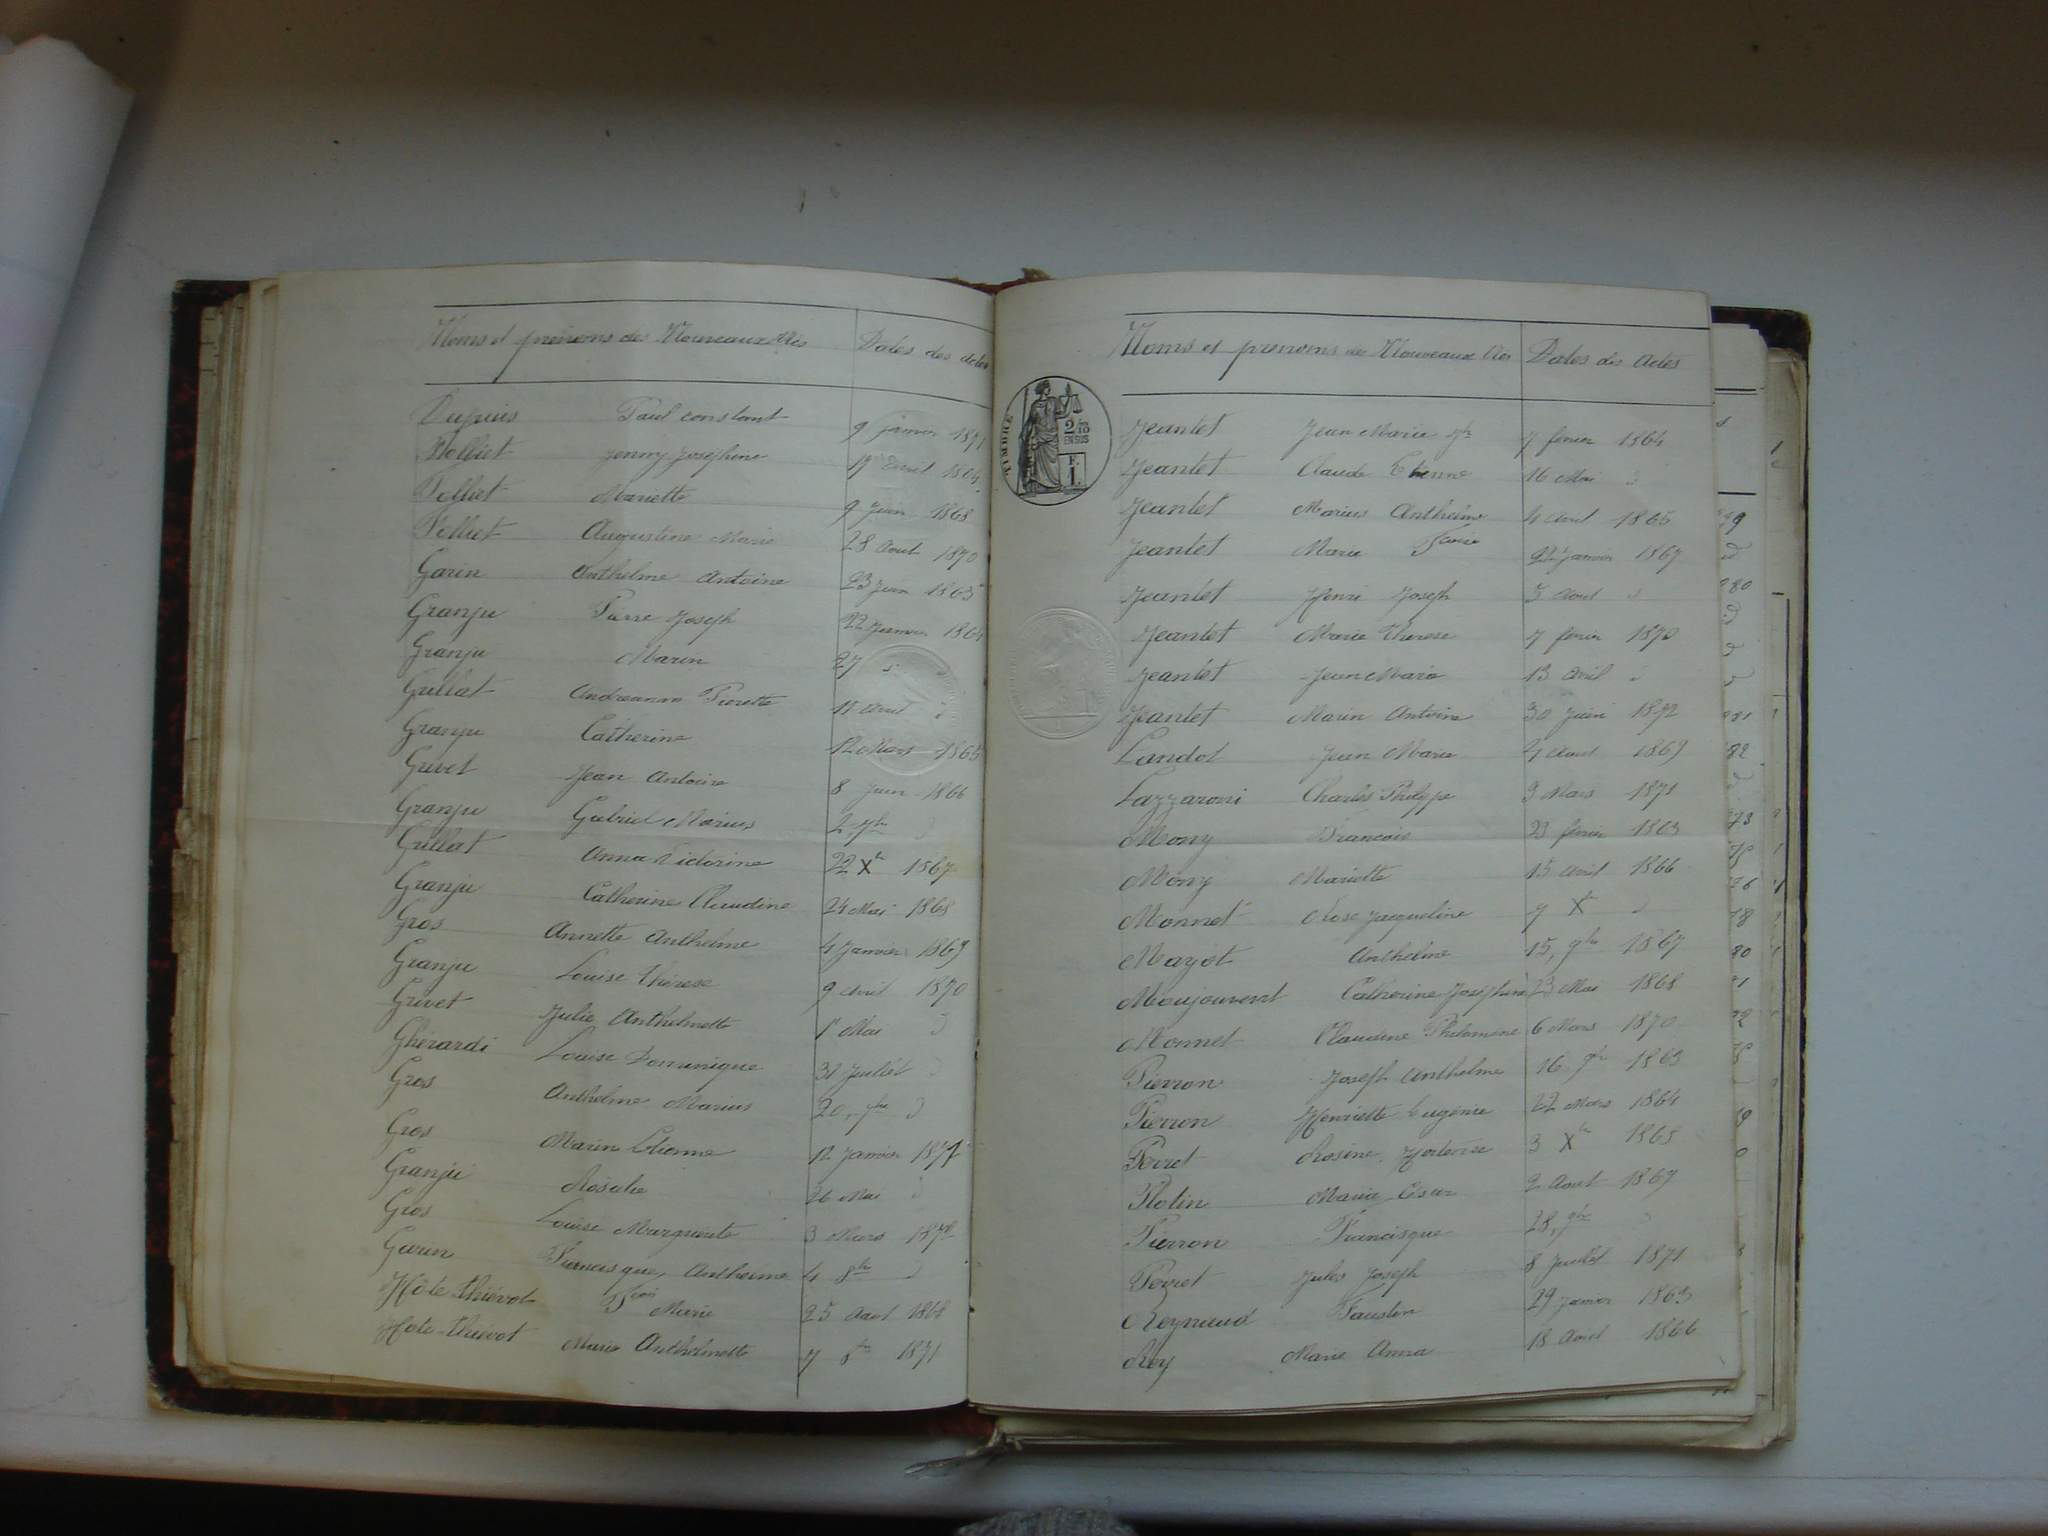 Noms et prénoms des Nouveaux Nés Dates des actes
Dupuis Paul constant 9 janvier 1871
Folliet Jenny Joséphine 17 Avril 1864
Folliet Mariette 9 Juin 1868
Folliet Augustine Marie 28 Aout 1870
Garin Anthelme Antoine 23 Juin 1863
Granju Pierre Joseph 22 Janvier 1864
Granju Marin 27
Grillat Andreanne Pierette 11 Avril d
Granju Catherine 12 Mars 1865
Grivet Jean Antoine 8 Juin 1866
Granju Gabriel Marius 2, 7bre d
Grillat Anna Victorine 22 Xbre 1867
Granju Catherine Claudine 24 Mai 1868
Gros Annette Anthelme 4 Janvier 1869
Granju Louise thérese 9 Avril 1870
Grivet Julie Anthelmette 1r Mai d
Ghérardi Louise Dominique 31 Juillet d
Gros Anthelme Marius 20, d
Gros Marin Etienne 12 Janvier 1871
Granju Rosalie 26 Mai d
Gros Louise Marguerite 3 Mars 1872
Garin Francisque, Anthelme 4 8bre d
Hôte-thiévot Fçois Marie 25 Aout 1868
Hote-thievot Marie Anthelmette 7 8bre 1871
Noms et prenoms des Nouveaux Nés Dates des Actes
TIMBRE
2/10 EN SUS
F. 1.
Jeantet Jean Marie Jh 7 fevrier 1864
Jeantet Claude Etienne 16 Mai d
Jeantet Marius Anthelme 4 Avril 1865
Jeantet Marie 22 Janvier 1867
Jeantet Henri Joseph 5 Aout d
Jeantet Marie Therese 7 fevrier 1870
Jeantet Jean Marie 13 Avril d
Jeantet Marin Antoine 30 Juin 1872
Landot Jean Marie 4 Aout 1869
Lazzaroni Charles Philippe 3 Mars 1871
Mony Francois 23 fevrier 1863
Mony Mariette 15 Avril 1866
Monnet Rose Jacqueline 7 Xbre d
Mayot Anthelme 15, 9bre 1867
Moujouvent Catherine Joséphine 23 Mai 1868
Monnet Claudine Philomine 6 Mars 1870
Pierron Joseph Anthelme 16 9bre 1863
Pierron Henriette Eugénie 22 Mars 1864
Perret Rosine Hortense 3 Xbre 1865
Plotin Maria César 2 Aout 1867
Pierron Francisque 28, 9bre
Peyret Jules Joseph 8 Juillet 1871
Reynaud Faustin 29 Janvier 1863
Rey Marie Anna 18 Avril 1866